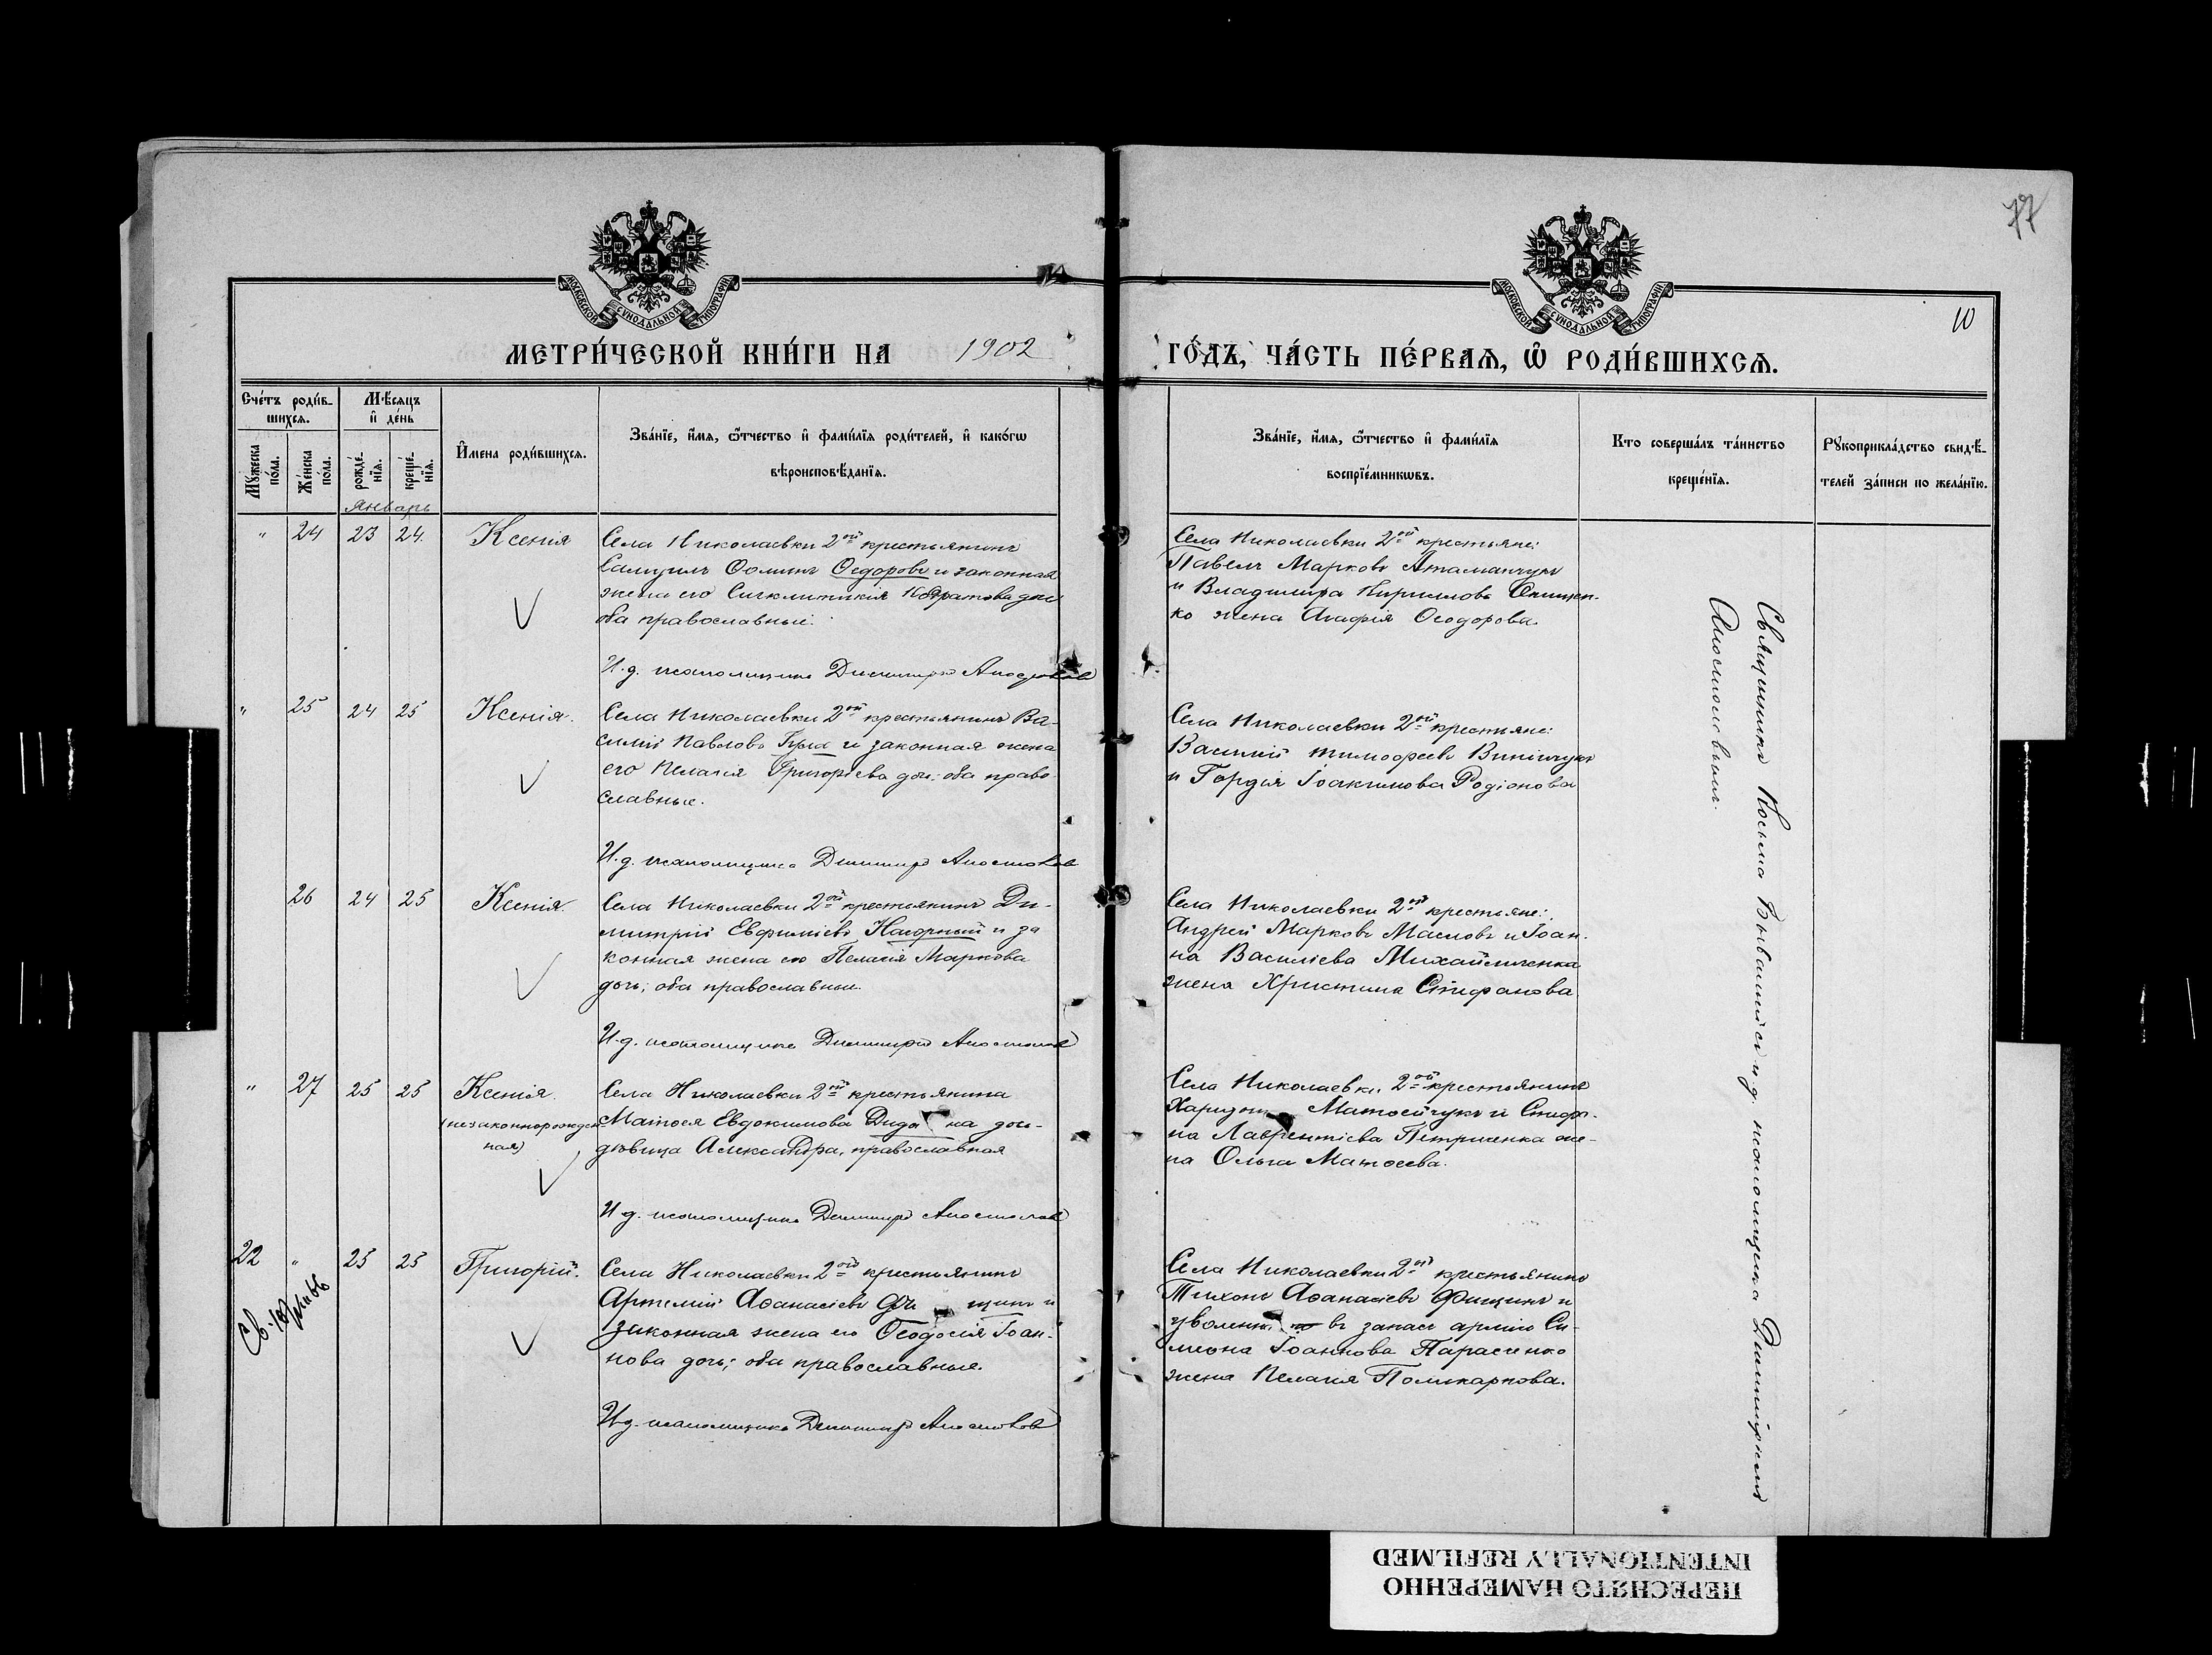 77
МОСКОВСКОЙ СУНОДАЛЬНОЙ ТИПОГРАФІИ
МОСКОВСКОЙ СУНОДАЛЬНОЙ ТИПОГРАФІИ
10
МЕТРИ́ЧЕСКОЙ КНИ́ГИ НА 1902
ГО́ДЪ, ЧА́СТЬ ПЕ́РВАѦ, Ѡ҆ РОДИ́ВШИХСѦ.
Сче́тъ роди́в-
шихсѧ.
Мꙋ́жеска по́ла.
Же́нска по́ла.
Мѣ́сяцъ
и҆ де́нь
рожде́-
нїѧ.
креще́-
нїѧ.
И҆́мена роди́вшихсѧ.
Зва́нїе, и҆́мѧ, ѻ҆́тчество и҆ фами́лїѧ роди́телей, и҆ како́гѡ
вѣроисповѣ́данїѧ.
Зва́нїе, и҆́мѧ, ѻ҆́тчество и҆ фами́лїѧ
воспрїе́мникѡвъ.
Кто соверша́лъ та́инство
креще́нїѧ.
Рꙋкоприкла́дство свидѣ́-
телей за́писи по жела́нїю.
Январь
" 24 23 24. Ксенія
Села Николаевки 2ой крестьянинъ
Самуилъ Ѳоминъ Ѳедоровъ и законная
жена его Синклитикія дочь
оба православные.
И. д. псаломщика Димитрій Апостоловъ
Села Николаевки 2ой крестьяне:
Павелъ Марковъ Атаманчукъ
и Владиміра Кириллова Онищен-
ко жена Агафія Ѳеодорова.
" 25 24 25 Ксенія.
Села Николаевки 2ой крестьянинъ Ва-
силій Павловъ и законная жена
его Пелагія Григоріева дочь: оба право-
славные.
И. д. псаломщика Димитрій Апостоловъ
Села Николаевки 2ой крестьяне:
Василій Тимофеевъ Винничукъ
и Іоакимова Родіонова
26 24 25 Ксенія.
Села Николаевки 2ой крестьянинъ Ди-
митрій Евфиміевъ Нагорный и за
конная жена его Пелагія Маркова
дочь; оба православные.
И. д. псаломщика Димитрій Апостоловъ
Села Николаевки 2ой крестьяне:
Андрей Марковъ Масловъ и Іоан-
на Василіева Михайличенка
жена Христина Стефанова
" 27 25 25 Ксенія.
(незаконнорожден
ная)
Села Николаевки 2ой крестьянина
Матѳея Евдокимова на дочь-
дѣвица Александра, православная
И. д. псаломщика Димитрій Апостоловъ
Села Николаевки 2ой крестьянинъ
Матвейчукъ и Стефа-
на Лаврентіева Петриченка же-
на Ольга Матѳеева.
22 " 25 25 Григорій.
Села Николаевки 2ой крестьянинъ
Артемій Аѳанасіевъ
законная жена его Ѳеодосія Іоан-
нова дочь; оба православные.
И. д. псаломщика Димитрій Апостоловъ
Села Николаевки 2ой крестьянинъ
Тихонъ Аѳанасіевъ Фищинъ и
въ запасъ арміи Си-
меона Іоаннова Парасенко
жена Пелагія Поликарпова.
Священникъ Косьма и. д. псаломщика Димитріемъ
Апостоловымъ.
ПЕРЕСНЯТО НАМЕРЕННО
INTENTIONALLY REFILMED